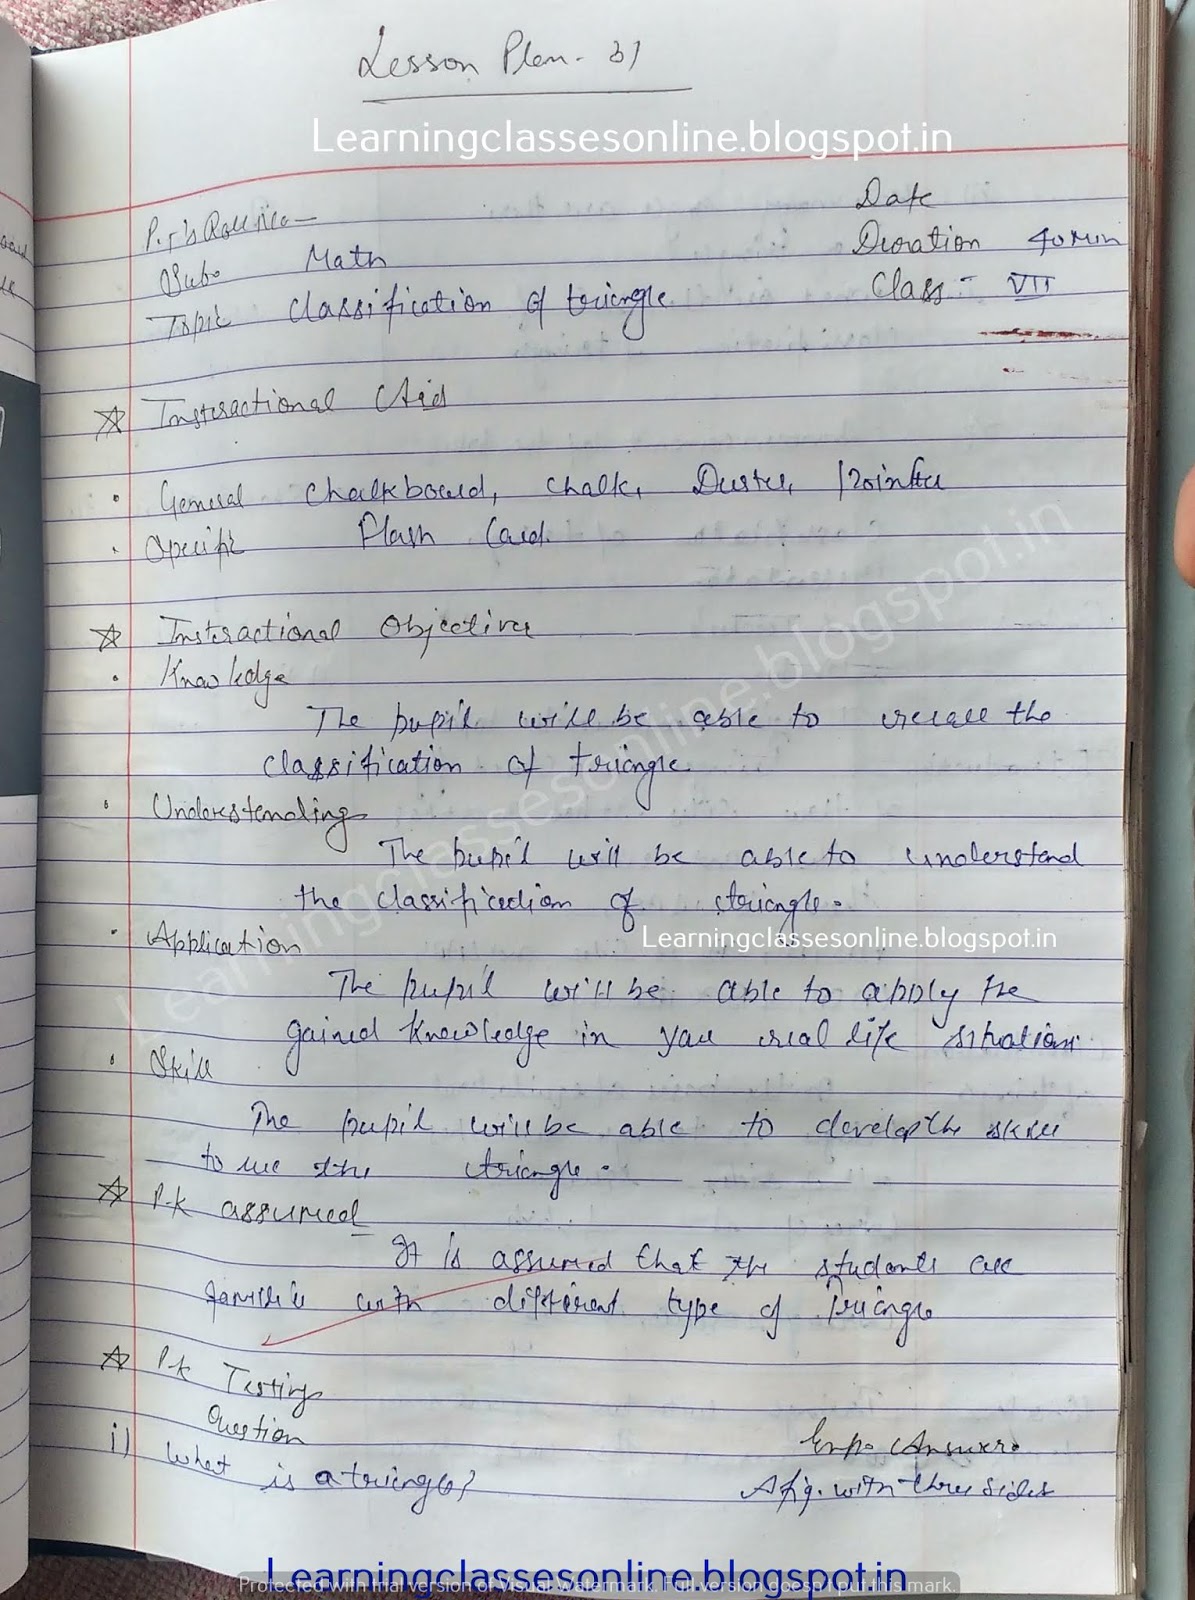 Lesson Plan - 31
Learningclassesonline.blogspot.in
P.T's Roll No- Date
Sub. Math Duration 40 Min
Topic Classification of triangle Class - VII
Instractional Aid
General Chalkboard, Chalk, Duster, Pointer
Specific Flash Card.
Instractional Objective
Knowledge
The pupil will be able to recall the
classification of triangle
Understanding
The pupil will be able to understand
the classification of triangle.
Learningclassesonline.blogspot.in
Application
Learningclassesonline.blogspot.in
The pupil will be able to apply the
gained knowledge in real life situation.
Skill
The pupil will be able to develop the skill
to use the triangle.
P.K assumed
It is assumed that the students are
familiar with different type of Triangle
P.K Testing
Question Exp. Answer.
i) What is a triangle? A fig. with three sides
Learningclassesonline.blogspot.in
Protected with trial version of Visual Watermark. Full version doesn't put this mark.